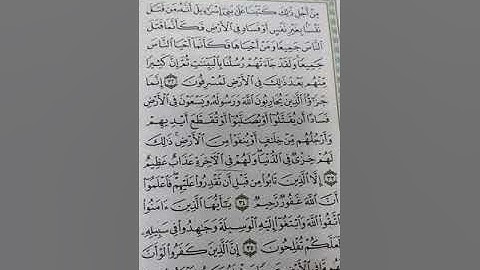 مِنْ أَجْلِ ذَٰلِكَ كَتَبْنَا عَلَىٰ بَنِيٓ إِسْرَٰٓءِيلَ أَنَّهُۥ مَن قَتَلَ
نَفْسًۢا بِغَيْرِ نَفْسٍ أَوْ فَسَادٍ فِي ٱلْأَرْضِ فَكَأَنَّمَا قَتَلَ
ٱلنَّاسَ جَمِيعًا وَمَنْ أَحْيَاهَا فَكَأَنَّمَآ أَحْيَا ٱلنَّاسَ
جَمِيعًا وَلَقَدْ جَآءَتْهُمْ رُسُلُنَا بِٱلْبَيِّنَٰتِ ثُمَّ إِنَّ كَثِيرًا
مِّنْهُم بَعْدَ ذَٰلِكَ فِي ٱلْأَرْضِ لَمُسْرِفُونَ ٣٢ إِنَّمَا
جَزَٰٓؤُا۟ ٱلَّذِينَ يُحَارِبُونَ ٱللَّهَ وَرَسُولَهُۥ وَيَسْعَوْنَ فِي ٱلْأَرْضِ
فَسَادًا أَن يُقَتَّلُوٓا۟ أَوْ يُصَلَّبُوٓا۟ أَوْ تُقَطَّعَ أَيْدِيهِمْ
وَأَرْجُلُهُم مِّنْ خِلَٰفٍ أَوْ يُنفَوْا۟ مِنَ ٱلْأَرْضِ ۚ ذَٰلِكَ
لَهُمْ خِزْيٌ فِي ٱلدُّنْيَا وَلَهُمْ فِي ٱلْءَاخِرَةِ عَذَابٌ عَظِيمٌ
٣٣ إِلَّا ٱلَّذِينَ تَابُوا۟ مِن قَبْلِ أَن تَقْدِرُوا۟ عَلَيْهِمْ ۖ فَٱعْلَمُوٓا۟
أَنَّ ٱللَّهَ غَفُورٌ رَّحِيمٌ ٣٤ يَٰٓأَيُّهَا ٱلَّذِينَ ءَامَنُوا۟
ٱتَّقُوا۟ ٱللَّهَ وَٱبْتَغُوٓا۟ إِلَيْهِ ٱلْوَسِيلَةَ وَجَٰهِدُوا۟ فِي سَبِيلِهِۦ
لَعَلَّكُمْ تُفْلِحُونَ ٣٥ إِنَّ ٱلَّذِينَ كَفَرُوا۟ لَوْ أَنَّ